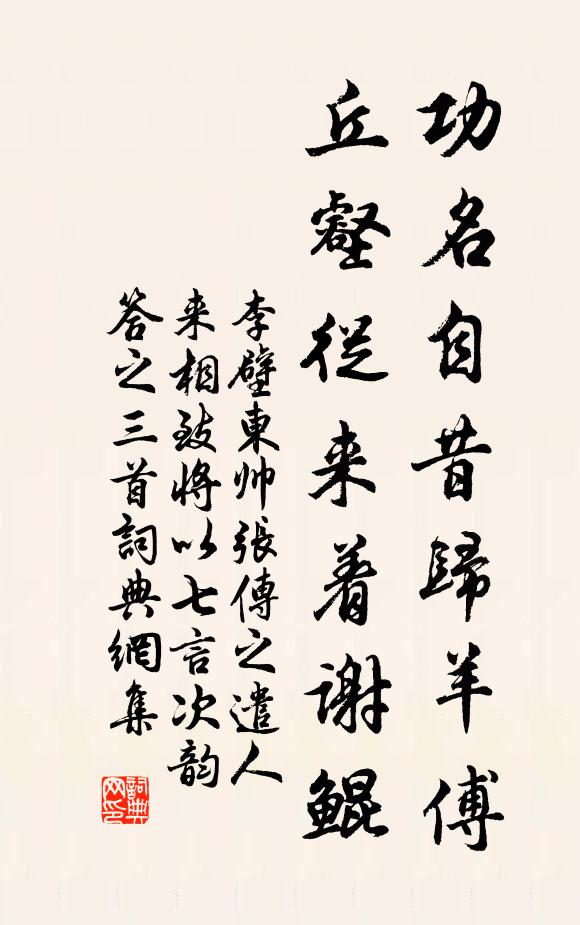 功名自昔歸羊傅
丘壑從来着謝鯤
李壁東帅張傳之遣人
来相致將以七言次韵
答之三首詞典網集
詞典网印